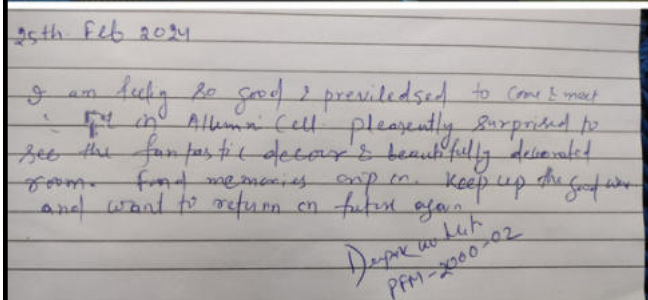 25th Feb 2024
I am feelig so good & previledsed to come & meet
in Allumni Cell. pleasently surprised to
see the fantastic decour & beautifully decorated
room. Fond memories in. Keep up the good
and want to return in future again
Deepak
PFM-2000-02